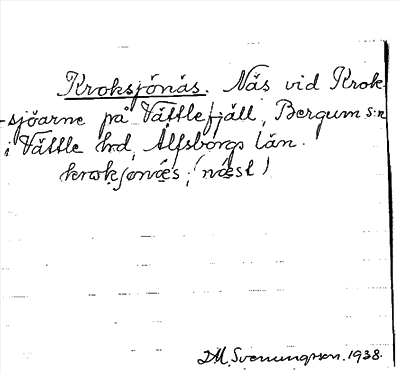 Kroksjönäs. Näs vid Krok-
-sjöarne på Vättlefjäll, Bergum s:n
i Vättle hrd, Älfsborgs län.
krokſjönä̱s ; (nä̱st)
D.M. Svenungsson. 1938.